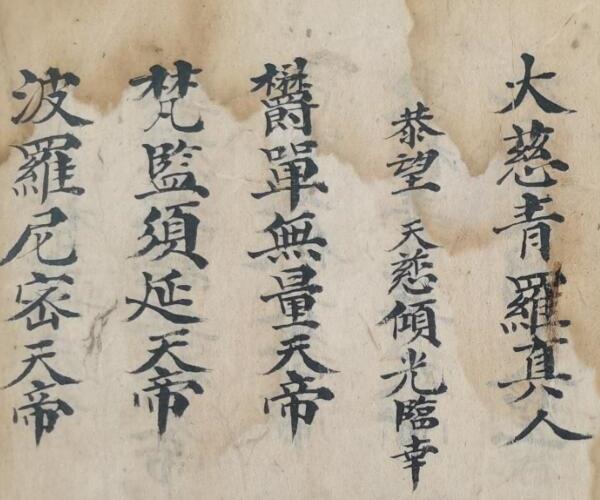 大慈青羅真人
恭望 天慈傾光臨幸
欝單無量天帝
梵監須延天帝
波羅尼密天帝